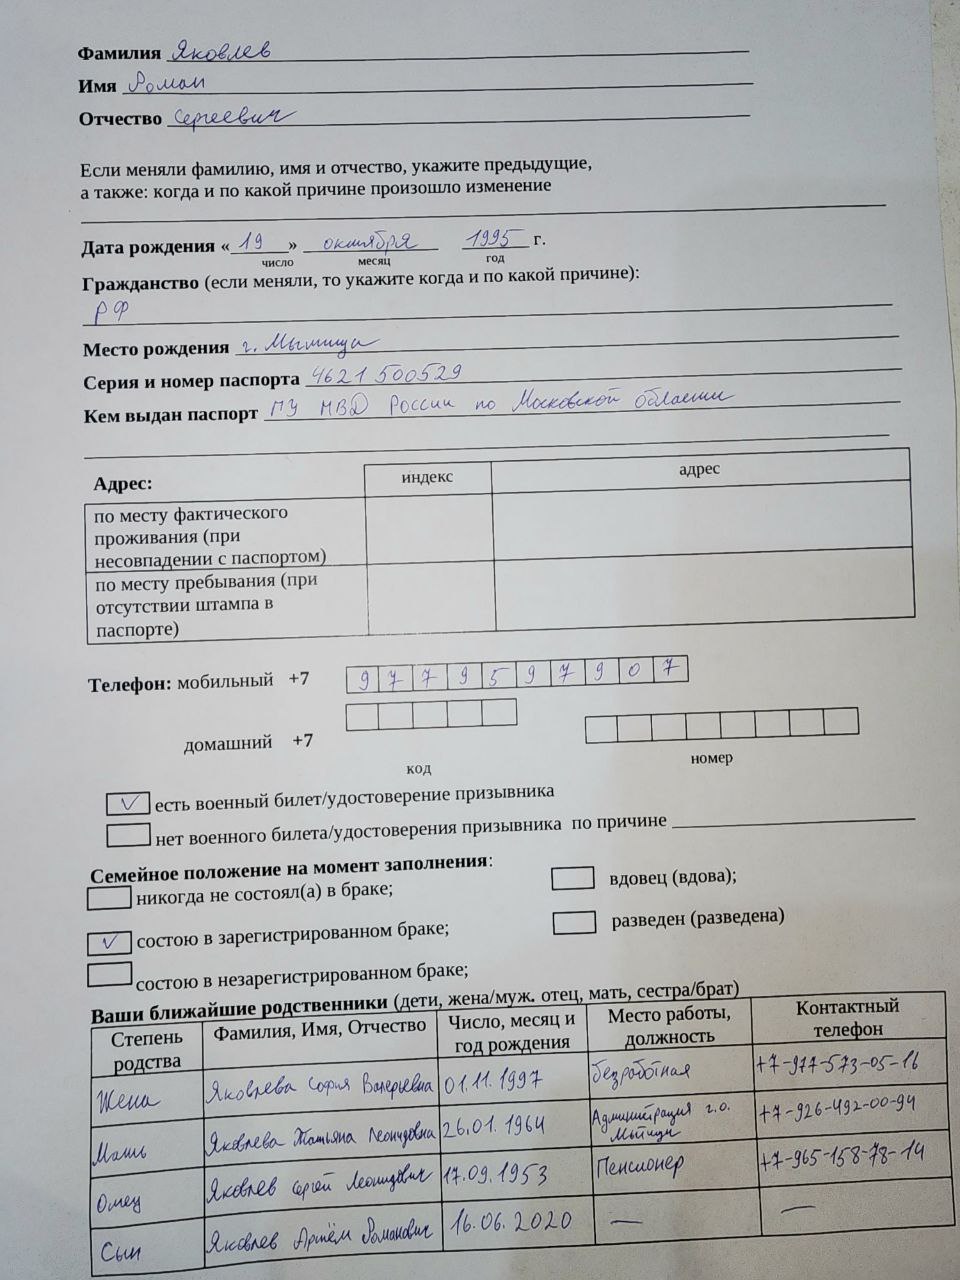 Фамилия Яковлев
Имя Роман
Отчество Сергеевич
Если меняли фамилию, имя и отчество, укажите предыдущие,
а также: когда и по какой причине произошло изменение
Дата рождения «19» октября 1995 г.
число месяц год
Гражданство (если меняли, то укажите когда и по какой причине):
РФ
Место рождения г. Мытищи
Серия и номер паспорта 4621 500529
Кем выдан паспорт ГУ МВД России по Московской области
Адрес: индекс адрес
по месту фактического
проживания (при
несовпадении с паспортом)
по месту пребывания (при
отсутствии штампа в
паспорте)
Телефон: мобильный +7 9779597907
домашний +7
код номер
✓ есть военный билет/удостоверение призывника
нет военного билета/удостоверения призывника по причине
Семейное положение на момент заполнения:
никогда не состоял(а) в браке; вдовец (вдова);
✓ состою в зарегистрированном браке; разведен (разведена)
состою в незарегистрированном браке;
Ваши ближайшие родственники (дети, жена/муж. отец, мать, сестра/брат)
Степень родства Фамилия, Имя, Отчество Число, месяц и год рождения Место работы, должность Контактный телефон
Жена Яковлева София Валерьевна 01.11.1997 безработная +7-977-573-05-16
Мать Яковлева Татьяна Леонидовна 26.01.1964 Администрация г.о. Мытищи +7-926-492-00-94
Отец Яковлев Сергей Леонидович 17.09.1953 Пенсионер +7-965-158-78-14
Сын Яковлев Артём Романович 16.06.2020 — —